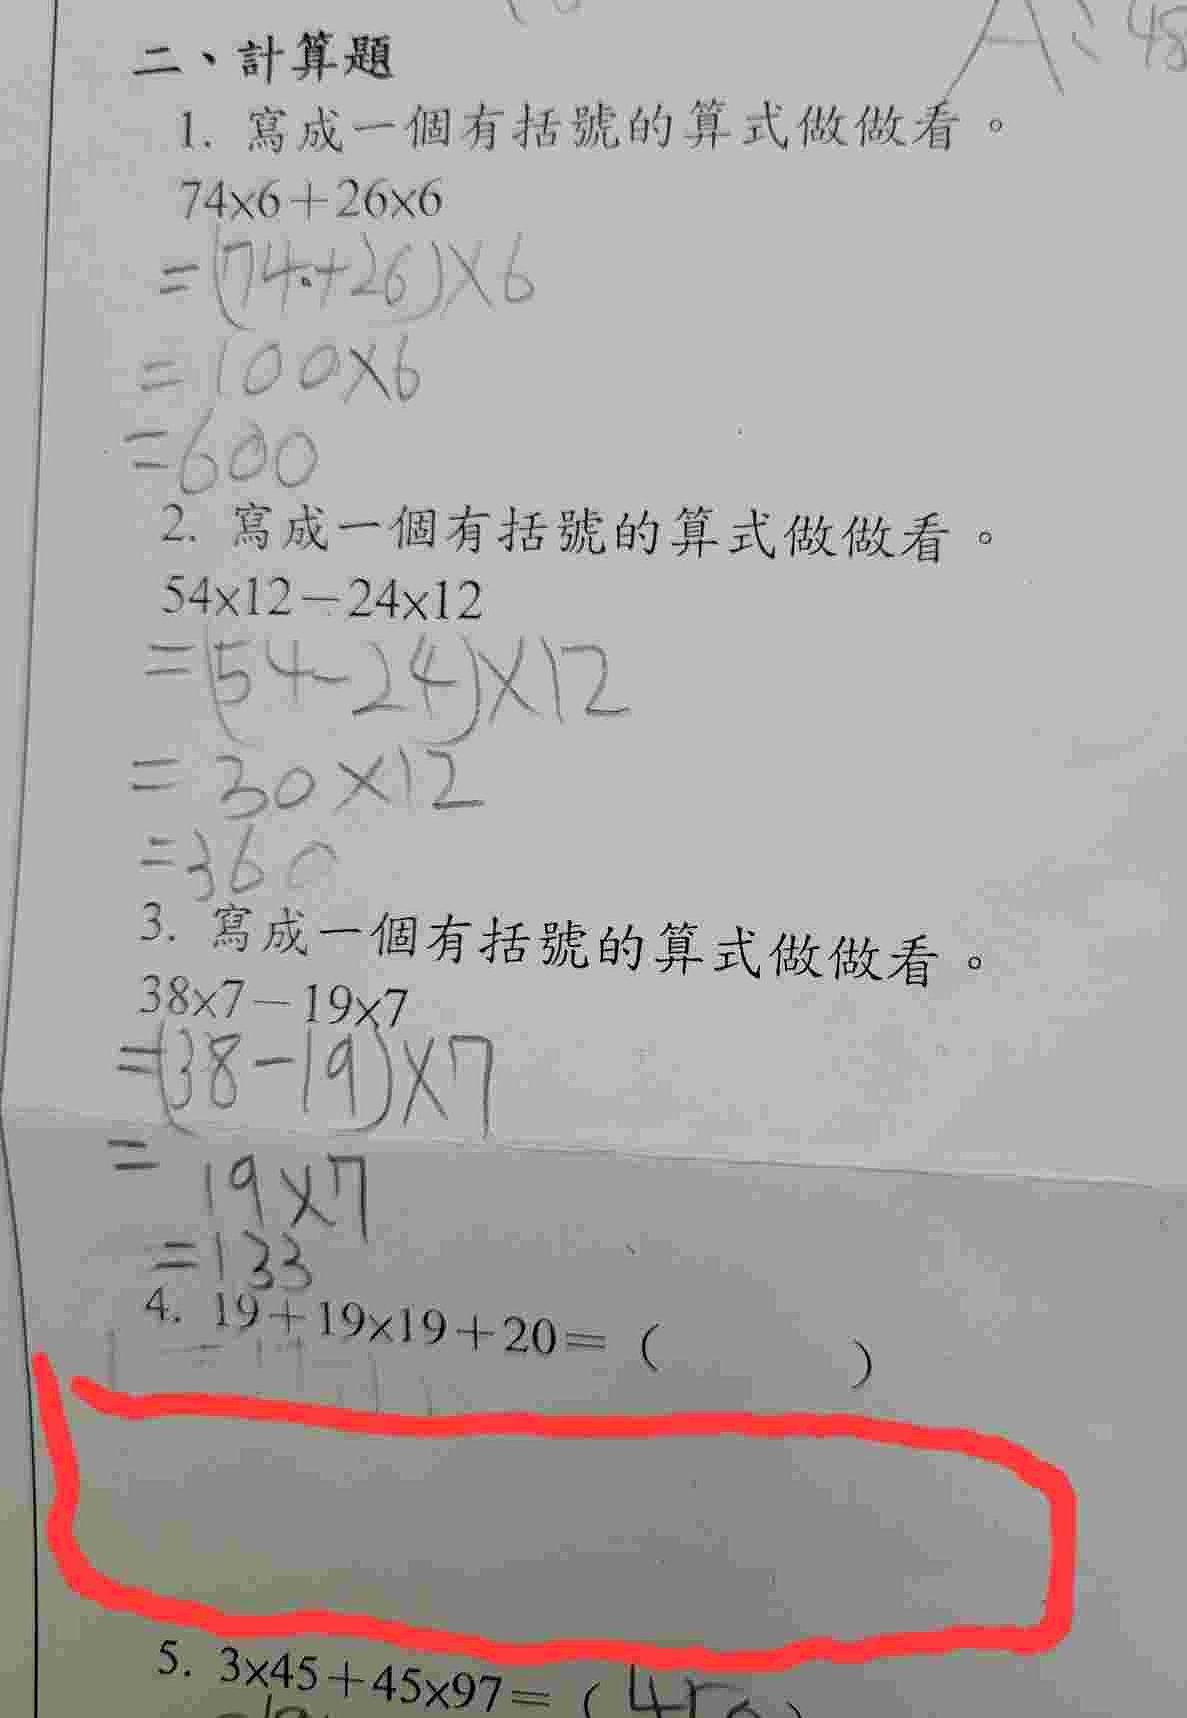 A:48
二、計算題
1. 寫成一個有括號的算式做做看。
74×6+26×6
=(74+26)×6
=100×6
=600
2. 寫成一個有括號的算式做做看。
54×12-24×12
=(54-24)×12
=30×12
=360
3. 寫成一個有括號的算式做做看。
38×7-19×7
=(38-19)×7
=19×7
=133
4. 19+19×19+20=( )
5. 3×45+45×97=(